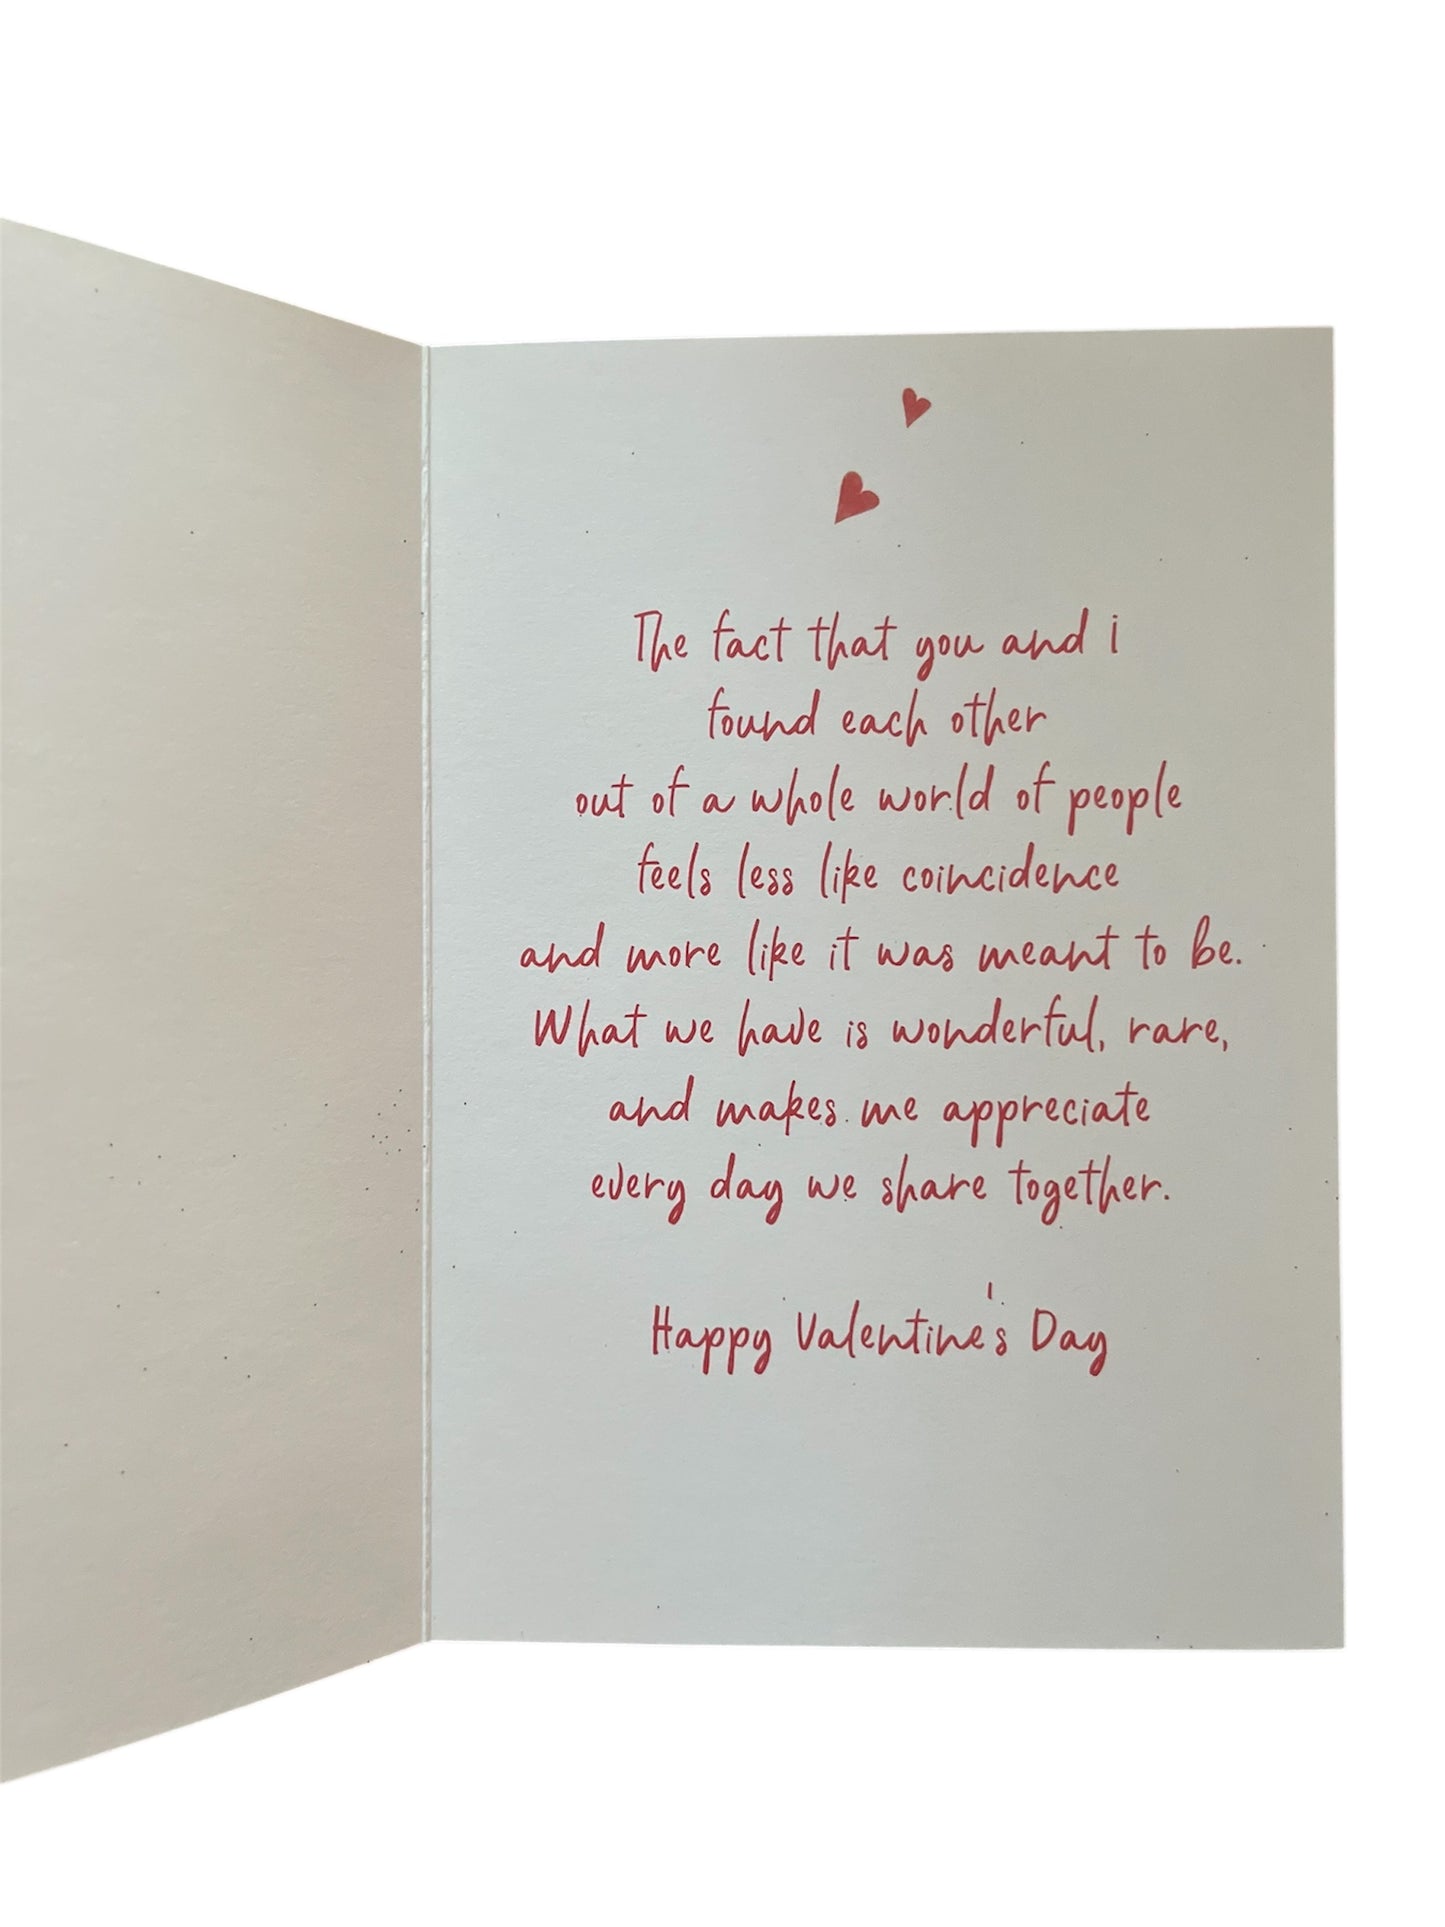 The fact that you and I
found each other
out of a whole world of people
feels less like coincidence
and more like it was meant to be.
What we have is wonderful, rare,
and makes me appreciate
every day we share together.
Happy Valentine's Day